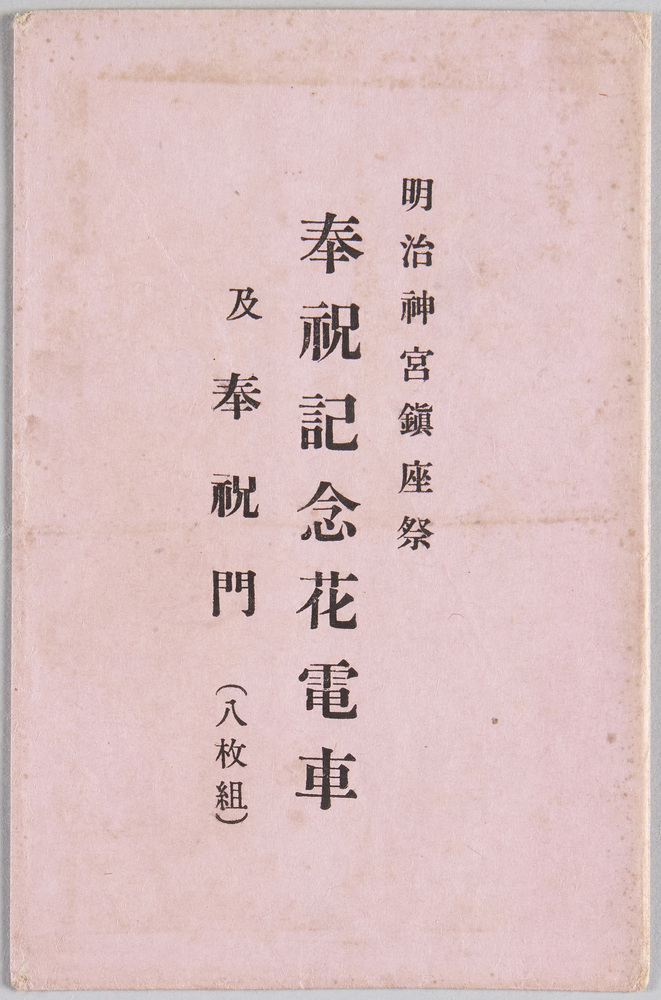 明治神宮鎭座祭
奉祝記念花電車
及奉祝門（八枚組）